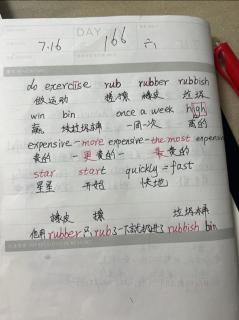 DAY
7.16 166 六
do exercise rub rubber rubbish
做运动 擦 橡皮 垃圾
win bin once a week high
赢 垃圾桶 一周一次 高的
expensive-more expensive-the most expensive
贵的 - 更贵的 - 最贵的
star start quickly = fast
星星 开始 快地
橡皮 擦 垃圾桶
他用rubber rub 3一下就扔进了rubbish bin